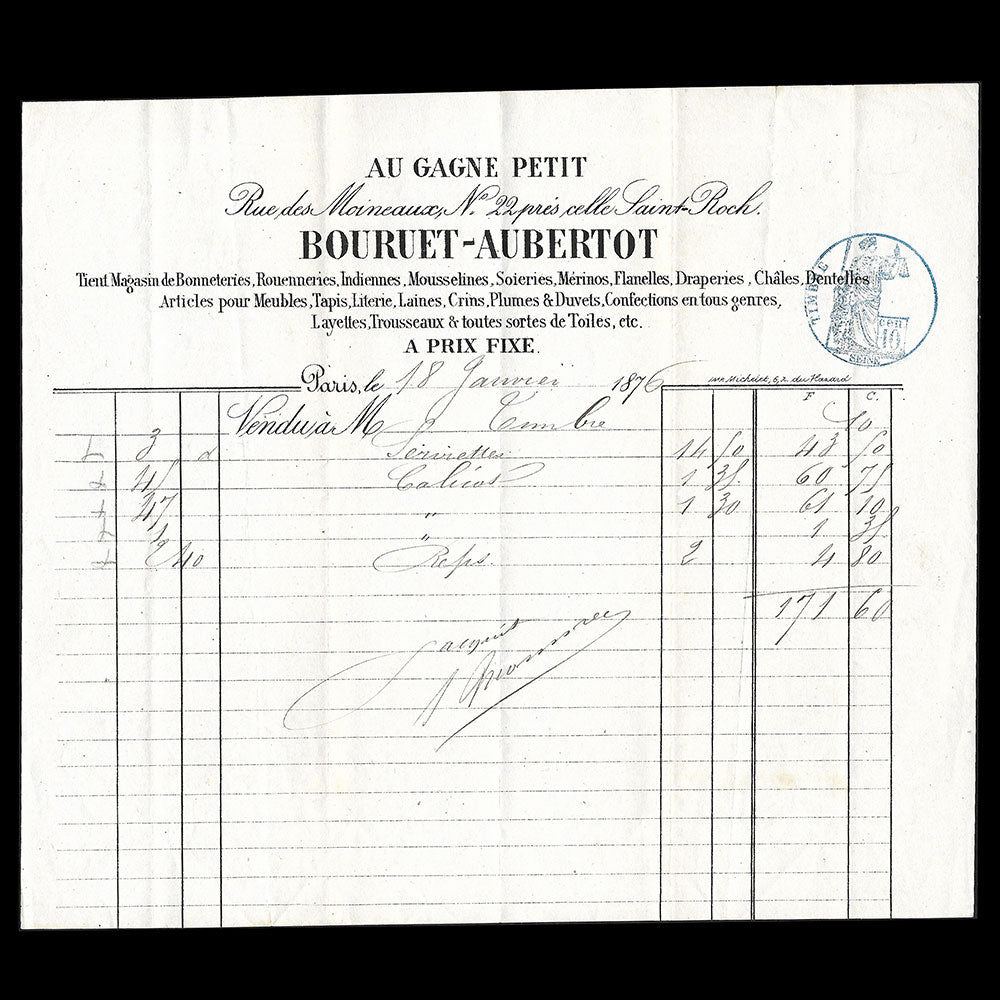 AU GAGNE PETIT
Rue des Moineaux, No. 22 près celle Saint-Roch.
BOURUET-AUBERTOT
Tient Magasin de Bonneteries, Rouenneries, Indiennes, Mousselines, Soieries, Mérinos, Flanelles, Draperies, Châles, Dentelles
Articles pour Meubles, Tapis, Literie, Laines, Crins, Plumes & Duvets, Confections en tous genres,
Layettes, Trousseaux & toutes sortes de Toiles, etc.
A PRIX FIXE.
TIMBRE
10 cen
SEINE
Paris, le 18 Janvier 1876
Imp. Michelet, 6, r. du Hazard
F C.
Vendu à M Timbre 10
3 d Serviettes 14 50 43 50
45 Calicot 1 35 60 75
47 " 1 30 61 10
1 " 1 35
2 40 Reps 2 4 80
171 60
acquit